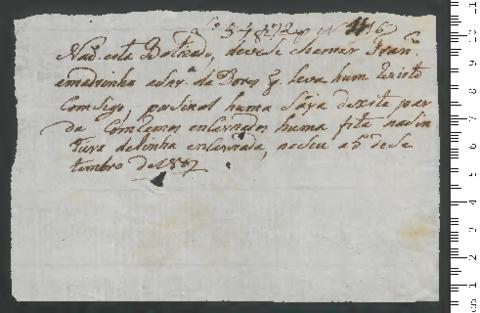 Naõ esta Batizado, deuese chamar Fran.
emadrinha a Snr.ª da Dores q leva hum Escrito
Comsigo, por sinal huma Saya de xita par
da Com Ramos encarnados, huma fita na Sin
tura de Linha encarnada, nasceu a 5 de Se
tembro de 1807